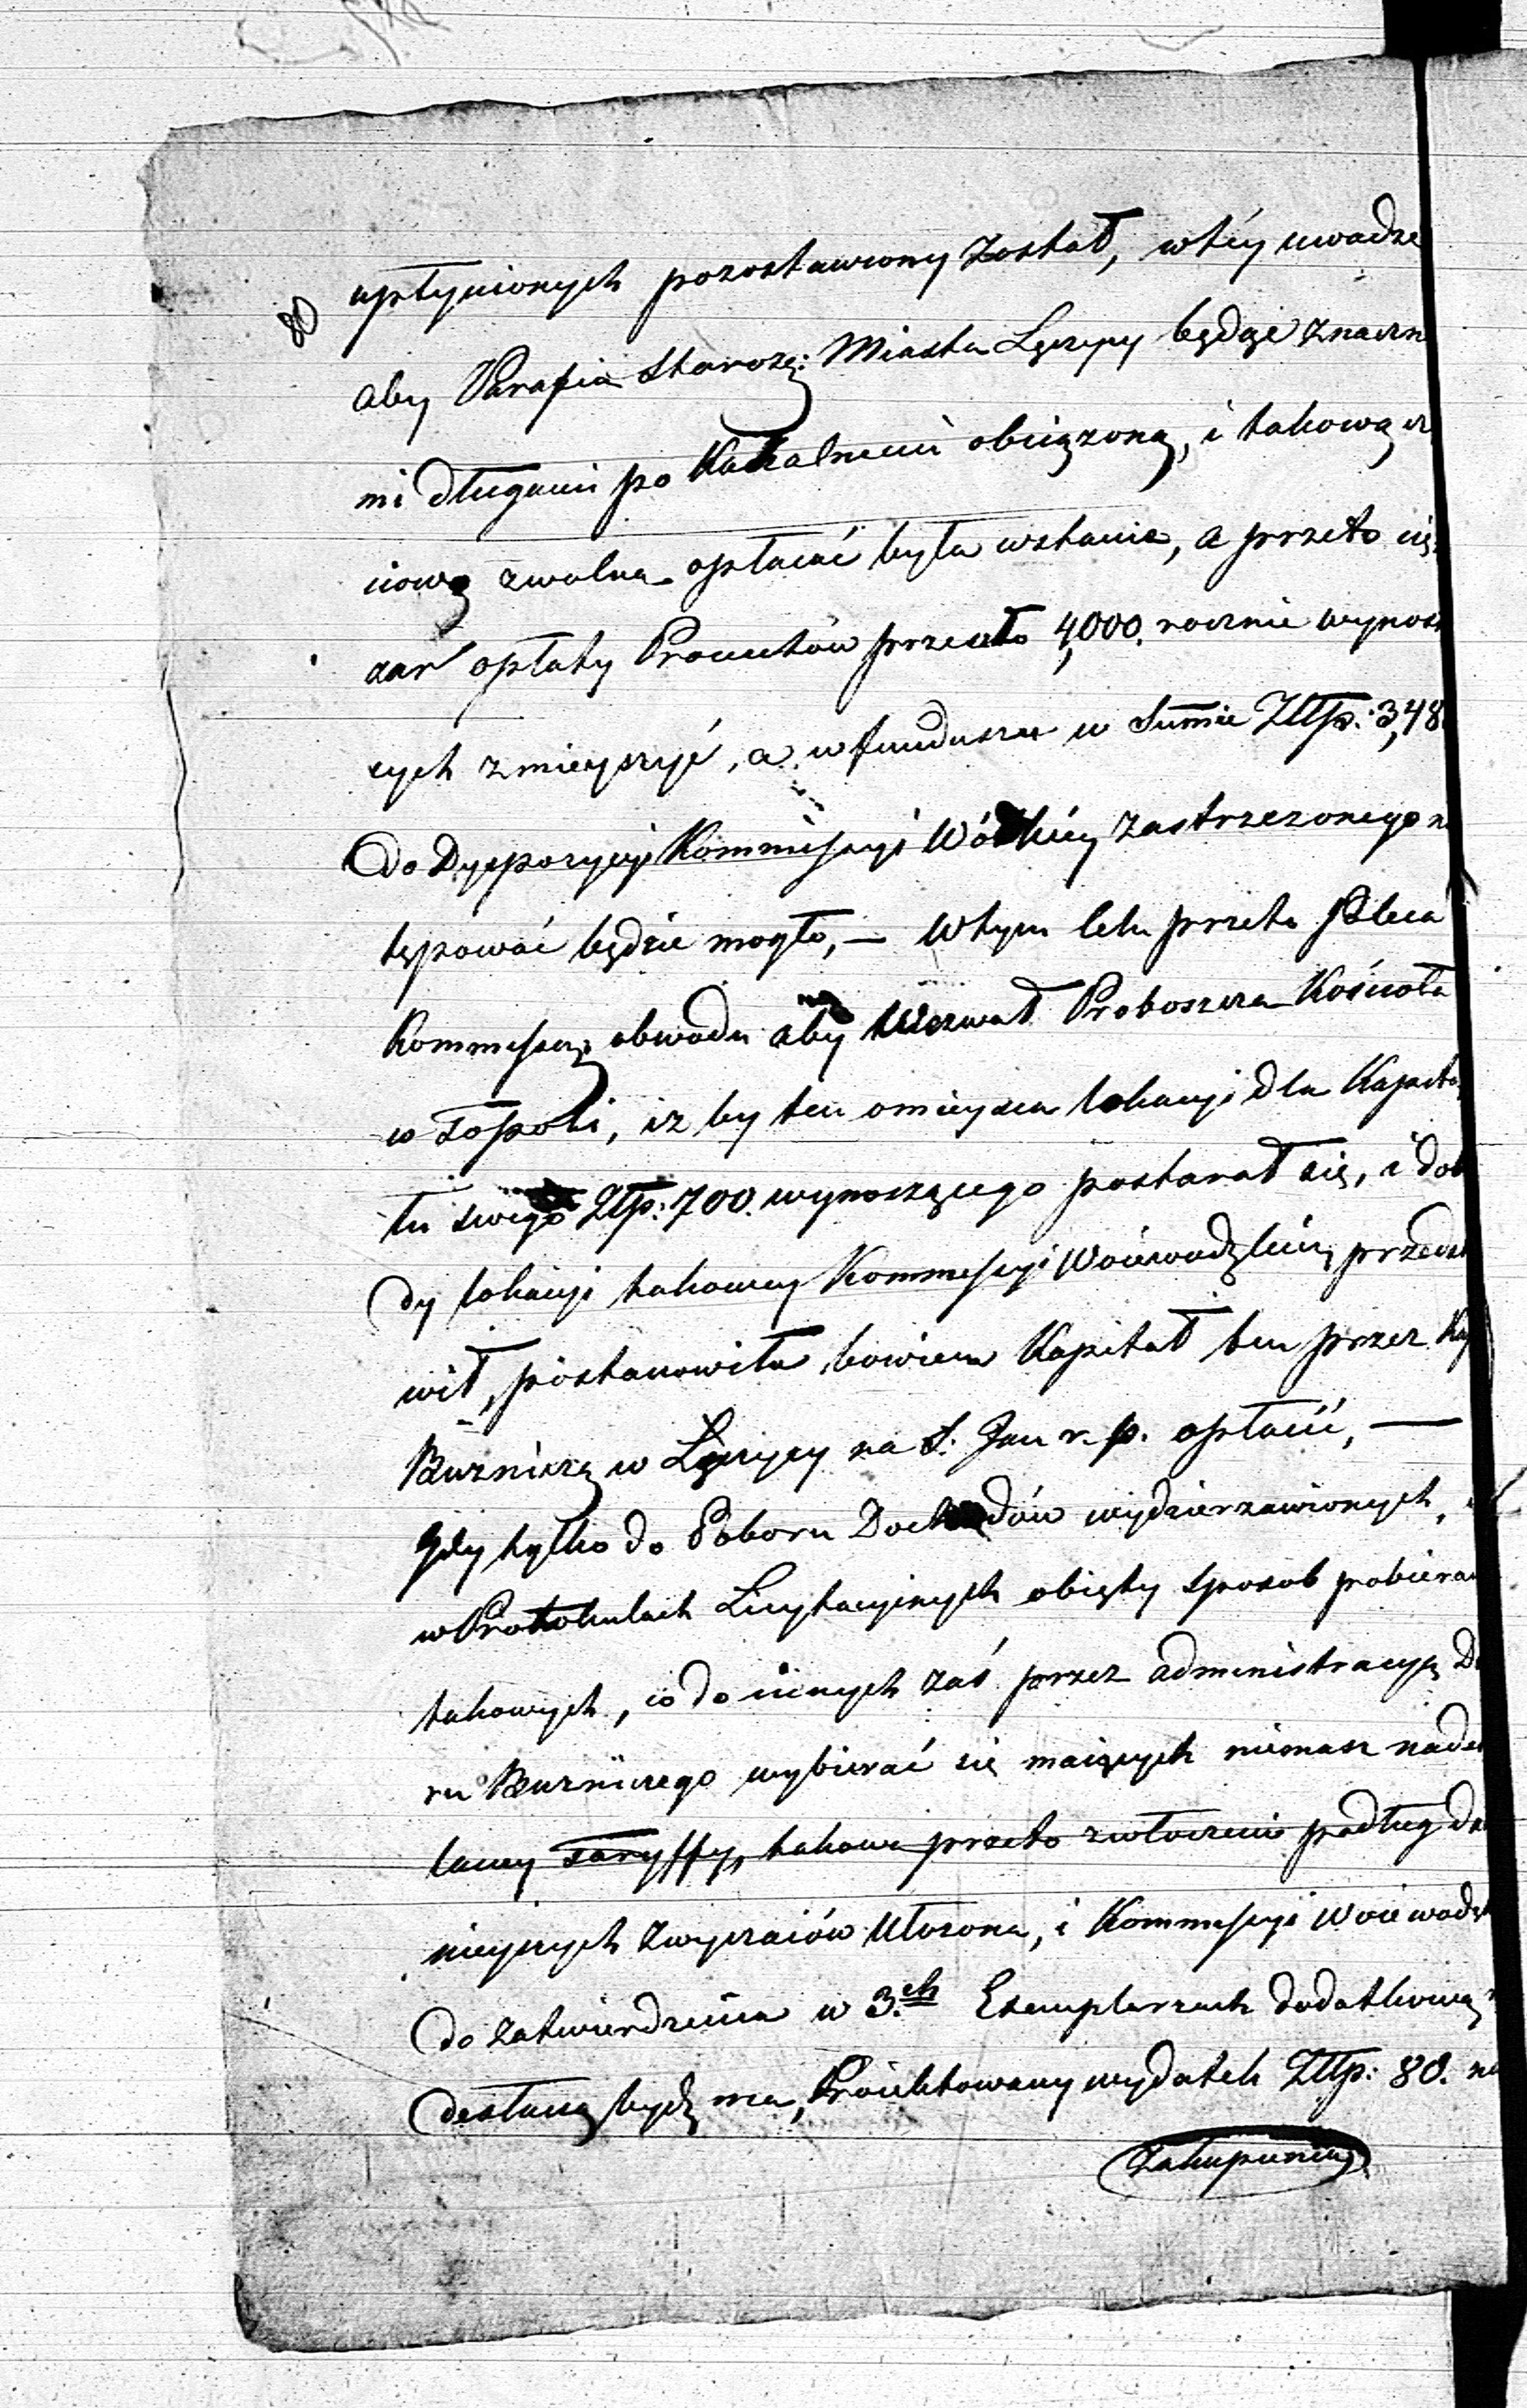 80
upłynionych pozostawiony został, w téy uwadze
aby Parafia Staroz: Miasta Łęczycy będąc znaczne
mi długami po Kahalnemi obciążoną, i takową
ciową zwolna opłacać była wstanie, a przeto cię
żar opłaty Procentów przeszło 4,000. rocznie wynosz
cych zmieyszyć, a w funduszu w Summie Złtp: 3,48
do Dyspozycyi Kommissyi Wódzkiey zastrzezonego n
tępować będzie mogło, — W tym celu przeto Poleca
Kommissarz: obwodu aby Wezwał Proboszcza Kościoła
w Topoli, iz by ten o mieysca lokacyi dla Kapita
łu swego Złtp: 700. wynoszącego postarał się, i do
dy lokacyi takowey Kommissyi Woiewodzkiey przedst
wił, postanowiła bowiem Kapitał ten przez Ka
Buzniczą w Łęczycy na S. Jan r. p. opłacić, —
Gdy tylko do Poboru Dochodów wydzierzawionych,
w Protokułach Licytacyinych obięty sposob pobieran
takowych, co do innych zaś przez administracyą Do
ru Buzniczego wybierać się maiących niemasz nade
łaney Taryffy, takowa przeto niezwłocznie podług da
nieyszych zwyczaiów Utozona, i Kommissyi Woiewodzk
do zatwierdzenia w 3.ch Exemplarzach dodatkową
desłaną bydź ma, Proiektowany wydatek Złtp: 80. na
Zakupienie